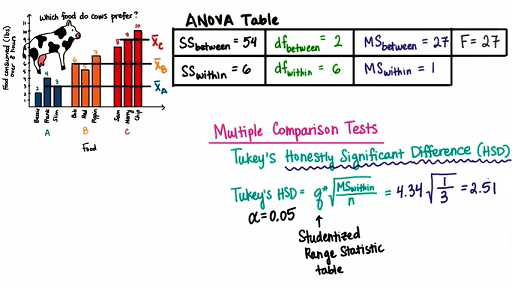 Which food do cows prefer?
Food consumed (lbs) over 8 hours
2
4
3
6
5
7
8
9
10
X̄C
X̄B
X̄A
Bessie
Frank
Slim
Bob
Red
Pippin
Sam
Henry
Chip
A
B
C
Food
ANOVA Table
SSbetween = 54
dfbetween = 2
MSbetween = 27
F = 27
SSwithin = 6
dfwithin = 6
MSwithin = 1
Multiple Comparison Tests
Tukey's Honestly Significant Difference (HSD)
Tukey's HSD = q* √(MSwithin/n) = 4.34 √(1/3) = 2.51
α = 0.05
Studentized
Range Statistic
table